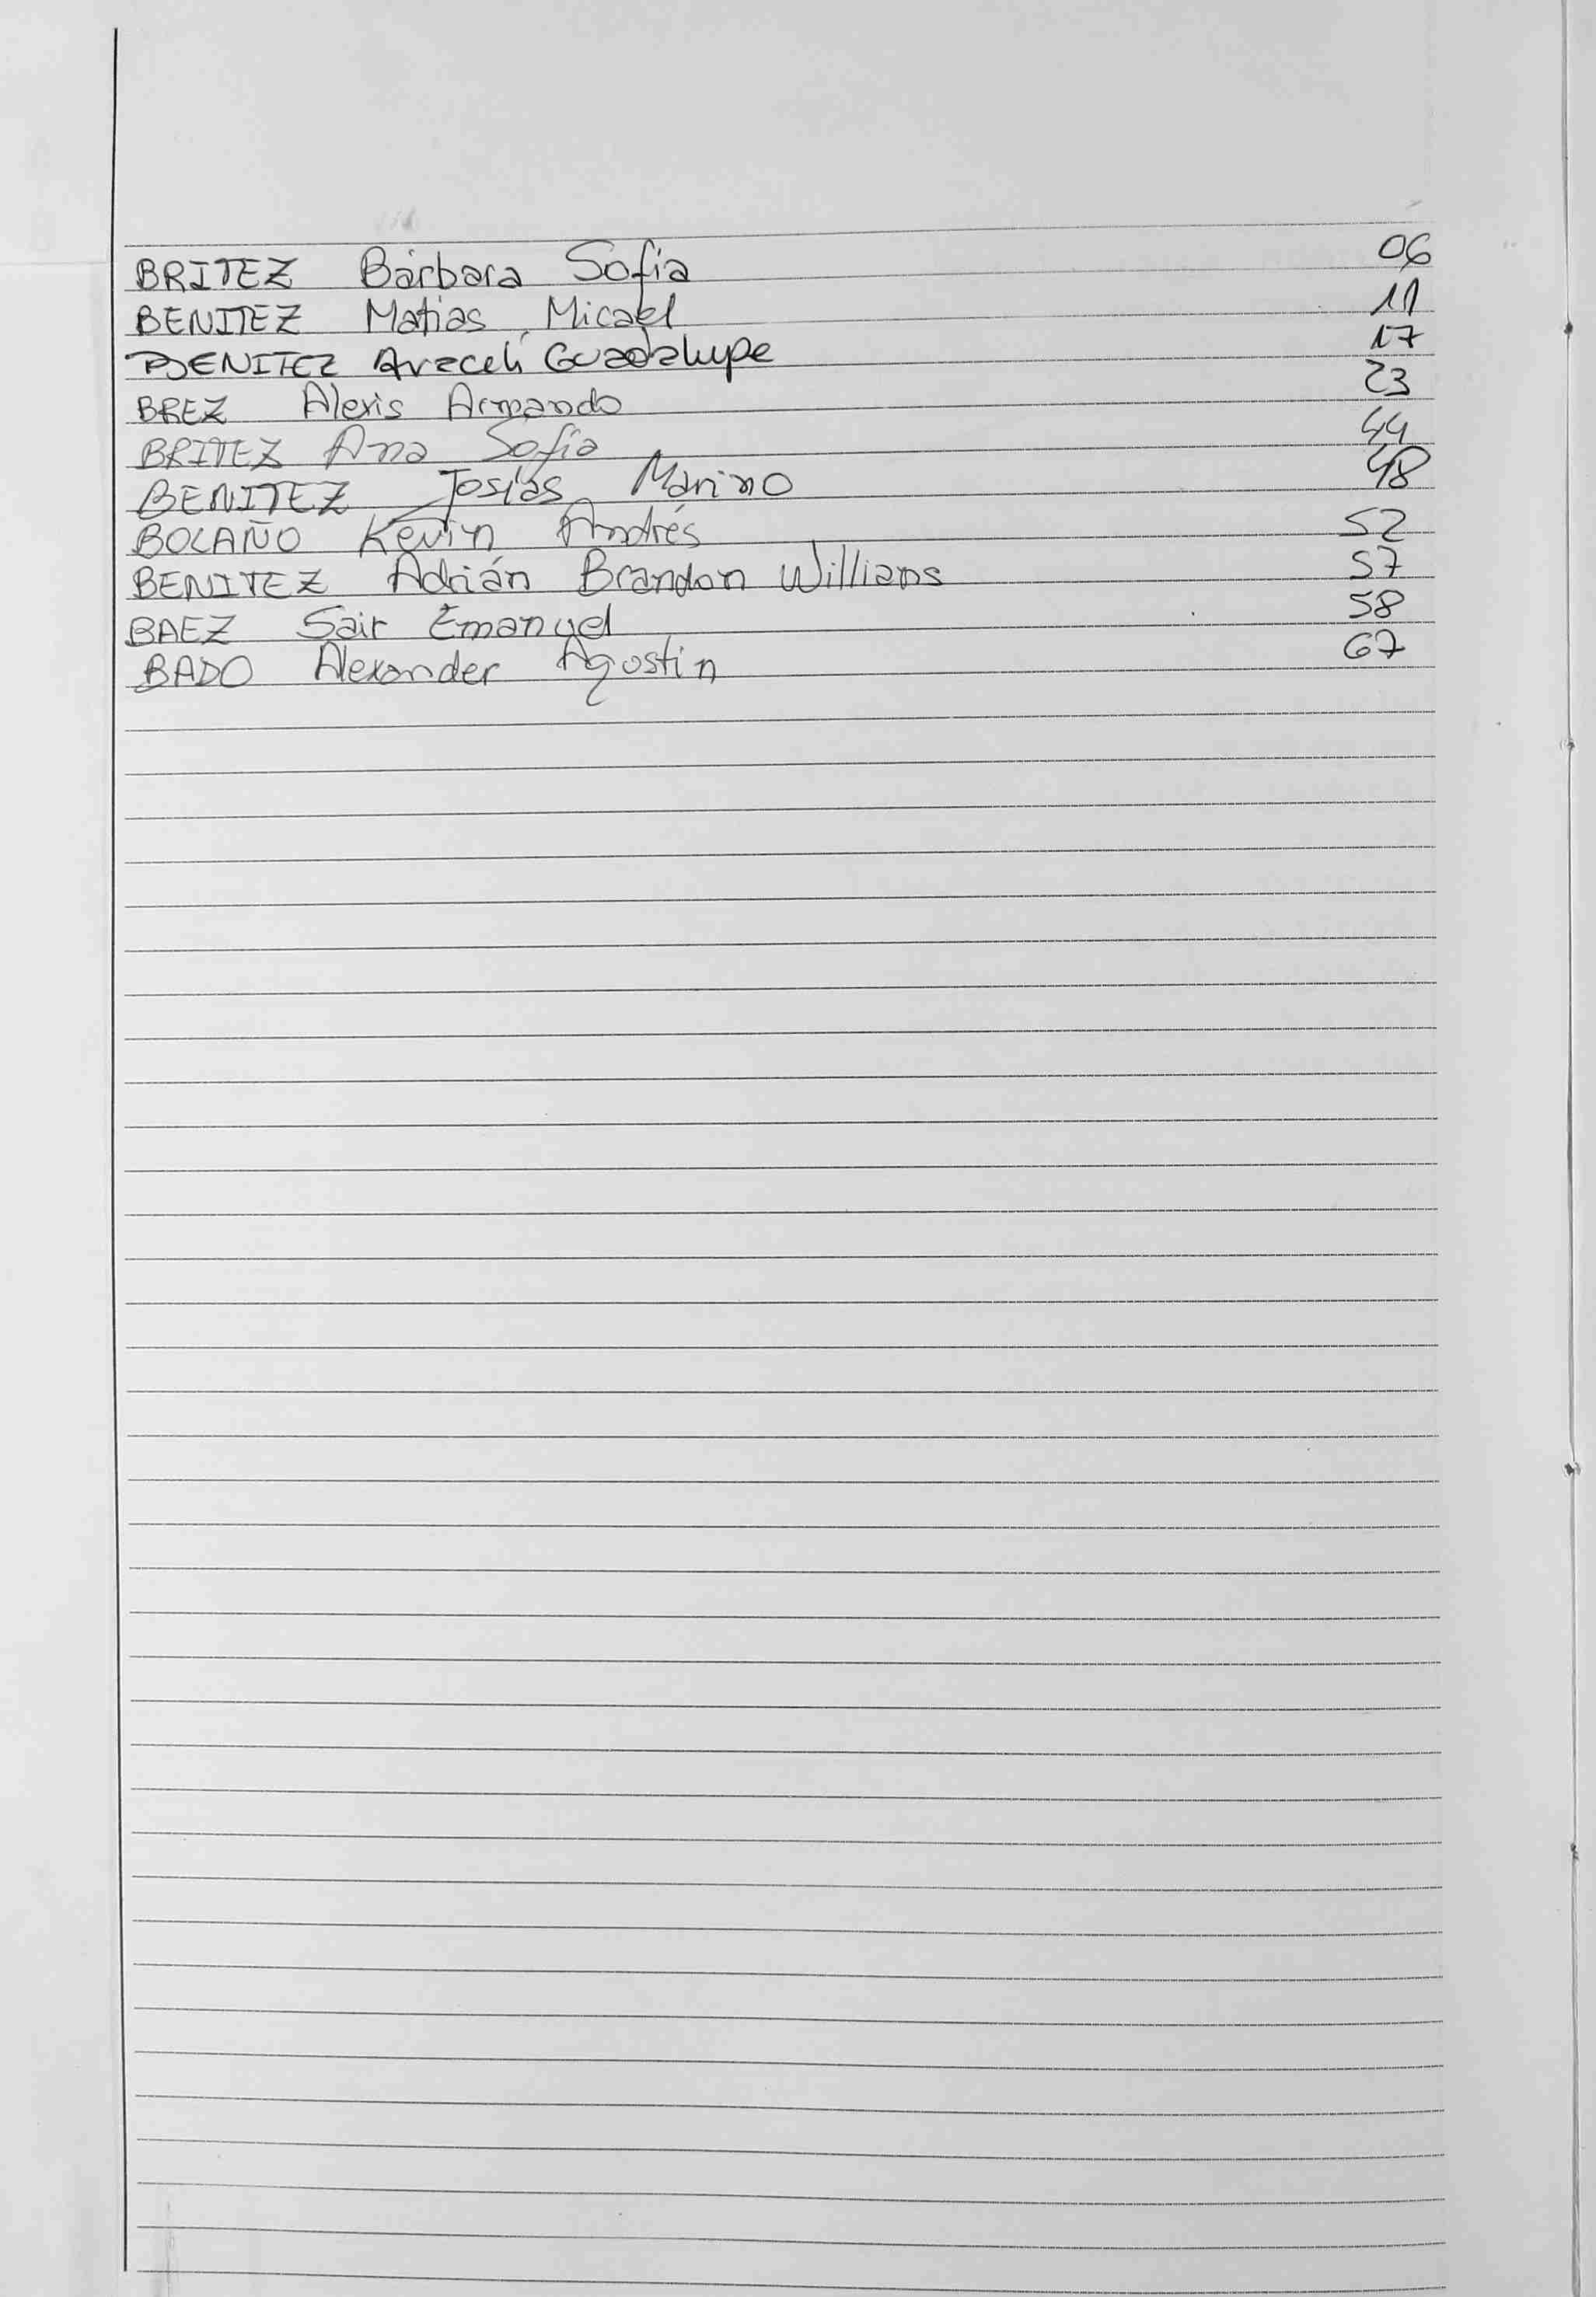 BRITEZ Bárbara Sofía 06
BENITEZ Matias Micael 11
BENITEZ Araceli Guadalupe 17
BREZ Alexis Armando 23
BRITEZ Ana Sofía 44
BENITEZ Josías Marino 48
BOLAÑO Kevin Andrés 52
BENITEZ Adrián Brandon Willians 57
BAEZ Sair Emanuel 58
BADO Alexander Agostin 67